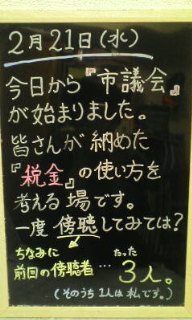 2月21日(水)
今日から『市議会』
が始まりました。
皆さんが納めた
『税金』の使い方を
考える場です。
一度傍聴してみては?
ちなみに たった
前回の傍聴者…3人。
(そのうち1人は私です。)